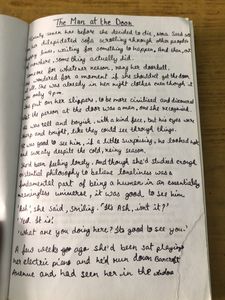 The Man at the Door
seven years before she decided to die, Nora Seed sat
her dilapidated sofa scrolling through other people's
lives, waiting for something to happen. And then, out
nowhere, something actually did.
one, for whatever reason, rang her doorbell.
wondered for a moment if she shouldn't get the door
all. She was already in her night clothes even though it
only 9pm.
put on her slippers to be more civilised and discovered
the person at the door was a man, one she recognised.
was tall and boyish, with a kind face, but his eyes were
sharp and bright, like they could see through things.
was good to see him, if a little surprising, he looked not
and sweaty despite the cold, rainy season.
he'd been feeling lonely. And though she'd studied enough
existential philosophy to believe loneliness was a
fundamental part of being a human in an essentially
meaningless universe, it was good to see him
'Ash', she said, smiling. 'It's Ash, isn't it?'
'Yes. It is.'
'What are you doing here? It's good to see you.'
A few weeks ago she'd been sat playing
her electric piano and he'd run down Bancroft
Avenue and had seen her in the window